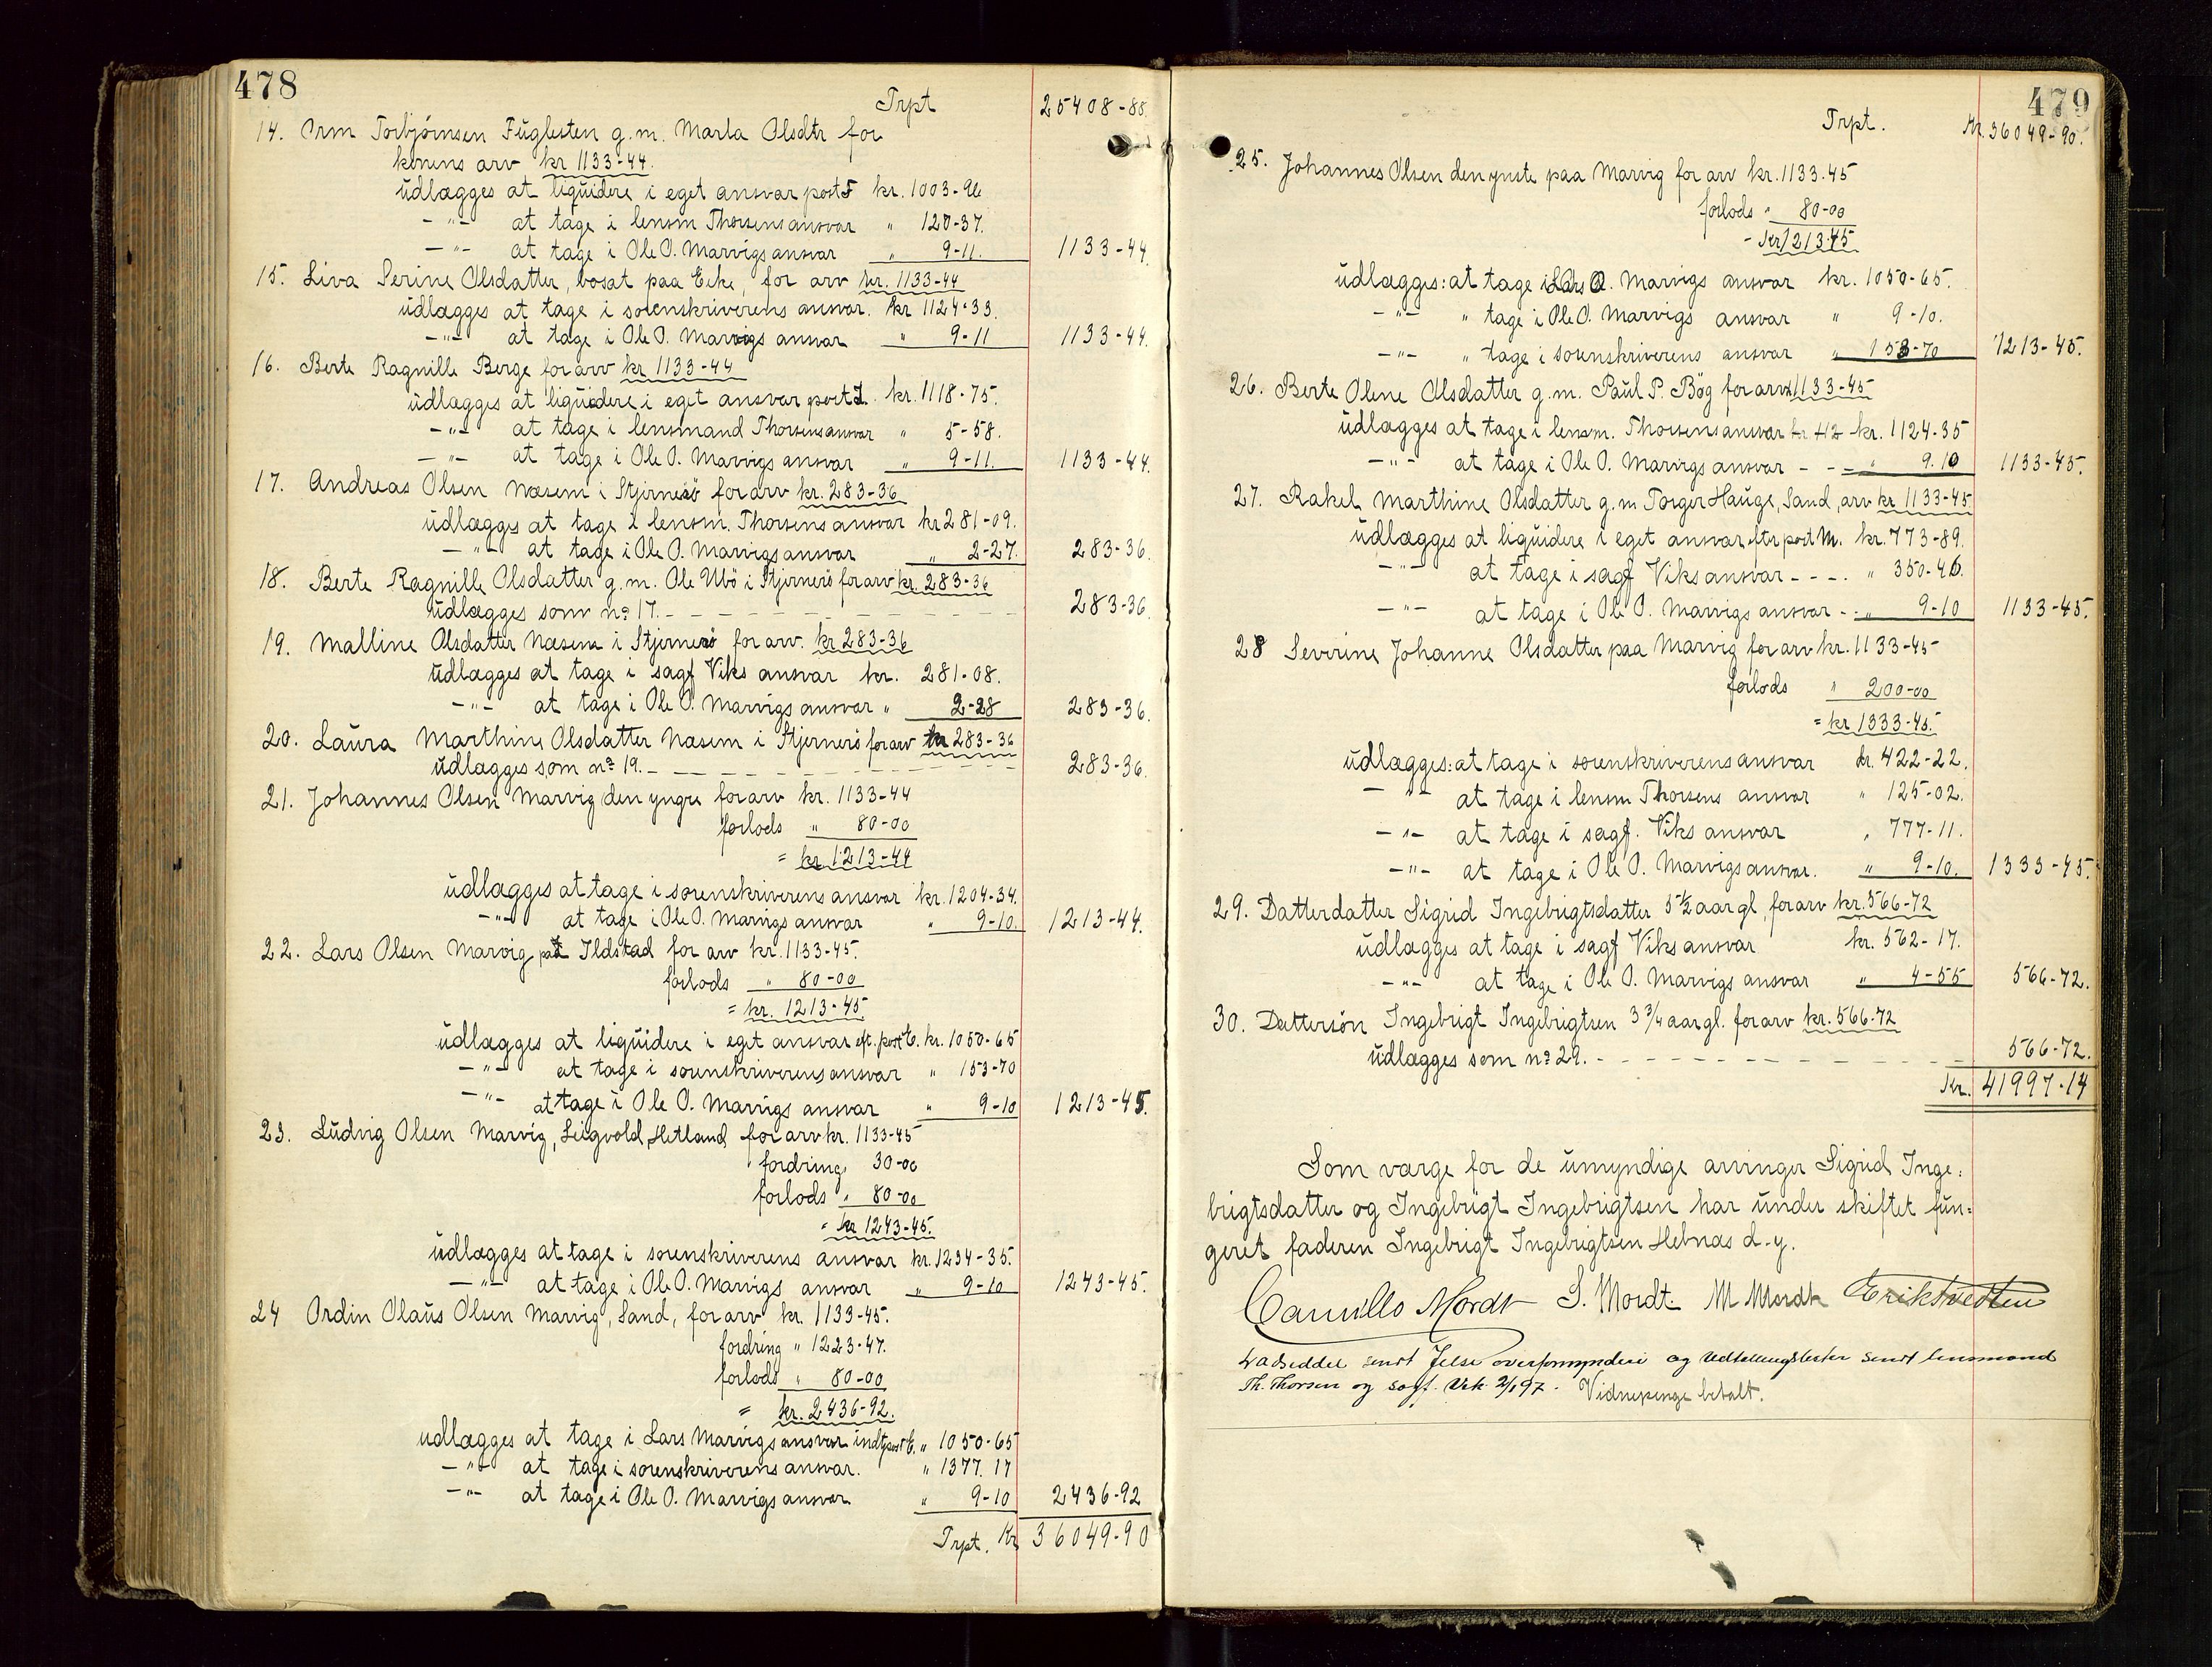 478
Trpt 25408-88
14. Orm Torbjörnsen Fuglesten g.m. Marta Olsdtr for
konens arv kr 1133-44.
udlægges at liquidere i eget ansvar post F kr. 1003-96
-"- at tage i lensm Thorsens ansvar " 120-37.
-"- at tage i Ole O. Marvigs ansvar " 9-11. 1133-44.
15. Liva Serine Olsdatter, bosat paa Eike, for arv kr. 1133-44
udlægges at tage i sorenskriverens ansvar. kr 1124-33.
-"- at tage i Ole O. Marvigs ansvar " 9-11 1133-44.
16. Berte Ragnille Berge for arv kr 1133-44
udlægges at liquidere i eget ansvar post I. kr. 1118-75.
-"- at tage i lensmand Thorsens ansvar " 5-58.
-"- at tage i Ole O. Marvigs ansvar " 9-11. 1133-44.
17. Andreas Olsen Næsem i Stjernerö for arv kr. 283-36
udlægges at tage i lensm. Thorsens ansvar kr 281-09.
-"- at tage i Ole O. Marvigs ansvar " 2-27. 283-36.
18. Berte Ragnille Olsdatter g.m. Ole Ubö i Stjernerö for arv kr. 283-36
udlægges som no 17. - - - - 283-36.
19. Malline Olsdatter Næsem i Stjernerö for arv. kr 283-36
udlægges at tage i sagf Viks ansvar kr. 281-08.
-"- at tage i Ole O. Marvigs ansvar " 2-28 283-36.
20. Laura Marthine Olsdatter Næsem i Stjernerö for arv kr 283-36
udlægges som no 19. - - - - 283-36.
21. Johannes Olsen Marvig den yngre for arv kr. 1133-44
forlods " 80-00
= kr 1213-44
udlægges at tage i sorenskriverens ansvar kr. 1204-34.
-"- at tage i Ole O. Marvigs ansvar " 9-10. 1213-44.
22. Lars Olsen Marvig paa Ildstad for arv kr. 1133-45.
forlods " 80-00
= kr. 1213-45.
udlægges at liquidere i eget ansvar eft. post C. kr. 1050-65
-"- at tage i sorenskriverens ansvar " 153-70
-"- at tage i Ole O. Marvigs ansvar " 9-10 1213-45.
23. Ludvig Olsen Marvig, Hetland for arv kr. 1133-45
fordring " 30-00
forlods " 80-00
= kr 1243-45.
udlægges at tage i sorenskriverens ansvar kr. 1234-35.
-"- at tage i Ole O. Marvigs ansvar " 9-10 1243-45.
24 Ordin Olaus Olsen Marvig, Sand, for arv kr. 1133-45.
fordring " 1223-47.
forlods " 80-00
= kr. 2436-92.
udlægges at tage i Lars Marvigs ansvar indt. post C. " 1050-65
-"- at tage i sorenskriverens ansvar. " 1377.17
-"- at tage i Ole O. Marvigs ansvar " 9-10 2436-92
Trpt. Kr 36049-90
479
Trpt. Kr. 36049-90.
25. Johannes Olsen den ynste paa Marvig for arv kr. 1133-45
forlods " 80-00
- Kr 1213-45
udlægges: at tage i Lars O. Marvigs ansvar kr. 1050-65.
-"- " tage i Ole O. Marvigs ansvar " 9-10.
-"- " tage i sorenskriverens ansvar " 153-70 1213-45.
26. Berte Olene Olsdatter g.m. Paul P. Bög for arv 1133-45
udlægges at tage i lensm. Thorsens ansvar kr. 1124-35
-"- at tage i Ole O. Marvigs ansvar - - - " 9.10 1133-45.
27. Rakel Marthine Olsdatter g.m Torger Hauge, Sand, arv kr 1133-45
udlægges at liquidere i eget ansvar eftr post M. kr. 773-89.
-"- at tage i sagf Viks ansvar - - - . " 350-46.
-"- at tage i Ole O. Marvigs ansvar - - " 9-10 1133-45.
28 Severine Johanne Olsdatter paa Marvig for arv kr. 1133-45
forlods " 200-00
= kr 1333-45.
udlægges: at tage i sorenskriverens ansvar kr. 422-22.
-"- at tage i lensm Thorsens ansvar " 125-02.
-"- at tage i sagf. Viks ansvar " 777-11.
-"- at tage i Ole O. Marvigs ansvar. " 9-10. 1333-45.
29. Datterdatter Sigrid Ingebrigtsdatter 5½ aar gl, for arv kr. 566-72
udlægges at tage i sagf Viks ansvar kr. 562-17.
-"- at tage i Ole O. Marvigs ansvar " 4-55 566-72.
30. Dattersön Ingebrigt Ingebrigtsen 3¾ aar gl. for arv kr. 566-72
udlægges som no 29. - - - - 566-72.
Kr. 41997.14
Som værge for de umyndige arvinger Sigrid Inge:
brigtsdatter og Ingebrigt Ingebrigtsen har under skiftet fun-
geret faderen Ingebrigt Ingebrigtsen Hebnæs d-y.
Camillo Mordt S. Mordt M Mordt Erikstvedten
sendt Jelse overformynderi og Udtællingslister sendt lensmand
Th. Thorsen og sagf. Vik 2/1 97. Vidnepenge betalt.